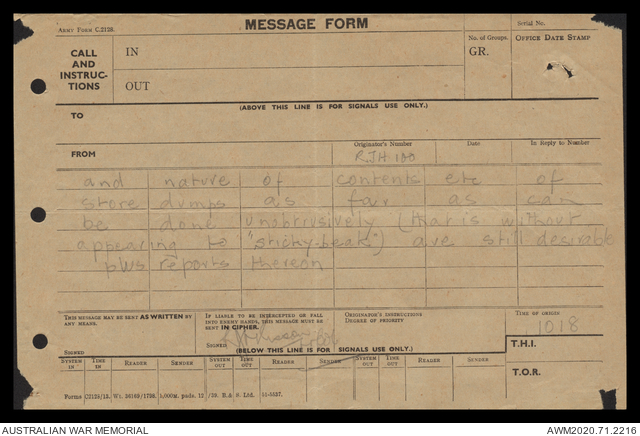 MESSAGE FORM
Army Form C.2128.
Serial No.
CALL AND INSTRUC- TIONS
IN
OUT
No. of Groups.
GR.
Office Date Stamp
(ABOVE THIS LINE IS FOR SIGNALS USE ONLY.)
TO
FROM
Originator's Number
Date
In Reply to Number
RJH 100
and nature of contents etc of
store dumps as far as can
be done unobtrusively (that is without
appearing to "sticky-beak") are still desirable
plus reports thereon
THIS MESSAGE MAY BE SENT AS WRITTEN BY ANY MEANS.
SIGNED
IF LIABLE TO BE INTERCEPTED OR FALL INTO ENEMY HANDS, THIS MESSAGE MUST BE SENT IN CIPHER.
SIGNED
ORIGINATOR'S INSTRUCTIONS DEGREE OF PRIORITY
TIME OF ORIGIN
1018
(BELOW THIS LINE IS FOR SIGNALS USE ONLY.)
T.H.I.
SYSTEM IN
TIME IN
READER
SENDER
SYSTEM OUT
TIME OUT
READER
SENDER
SYSTEM OUT
TIME OUT
READER
SENDER
T.O.R.
Forms C2128/13. Wt. 36169/1738. 5,000M. pads. 12/39. B.& S. Ltd. 51-5537.
AUSTRALIAN WAR MEMORIAL
AWM2020.71.2216